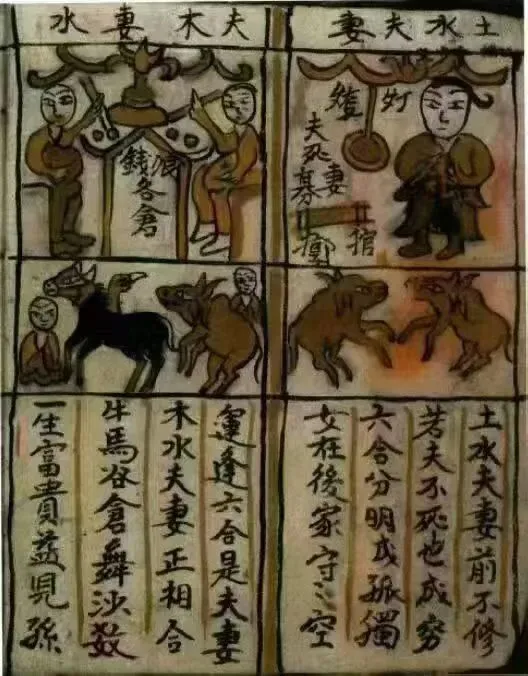 土水夫妻
灯
妻
夫死墓
棺
土水夫妻前不修
若夫不死也成穷
六合分明成孤獨
女在後家守〻空
夫木妻水
浪
錢各倉
運逢六合是夫妻
木水夫妻正相合
牛馬谷倉舞沙数
一生富貴益見孫